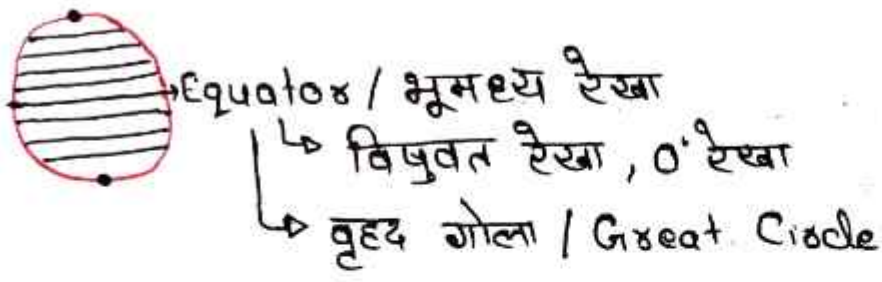 Equator / भूमध्य रेखा
विषुवत रेखा, 0° रेखा
वृहद गोला / Great Circle